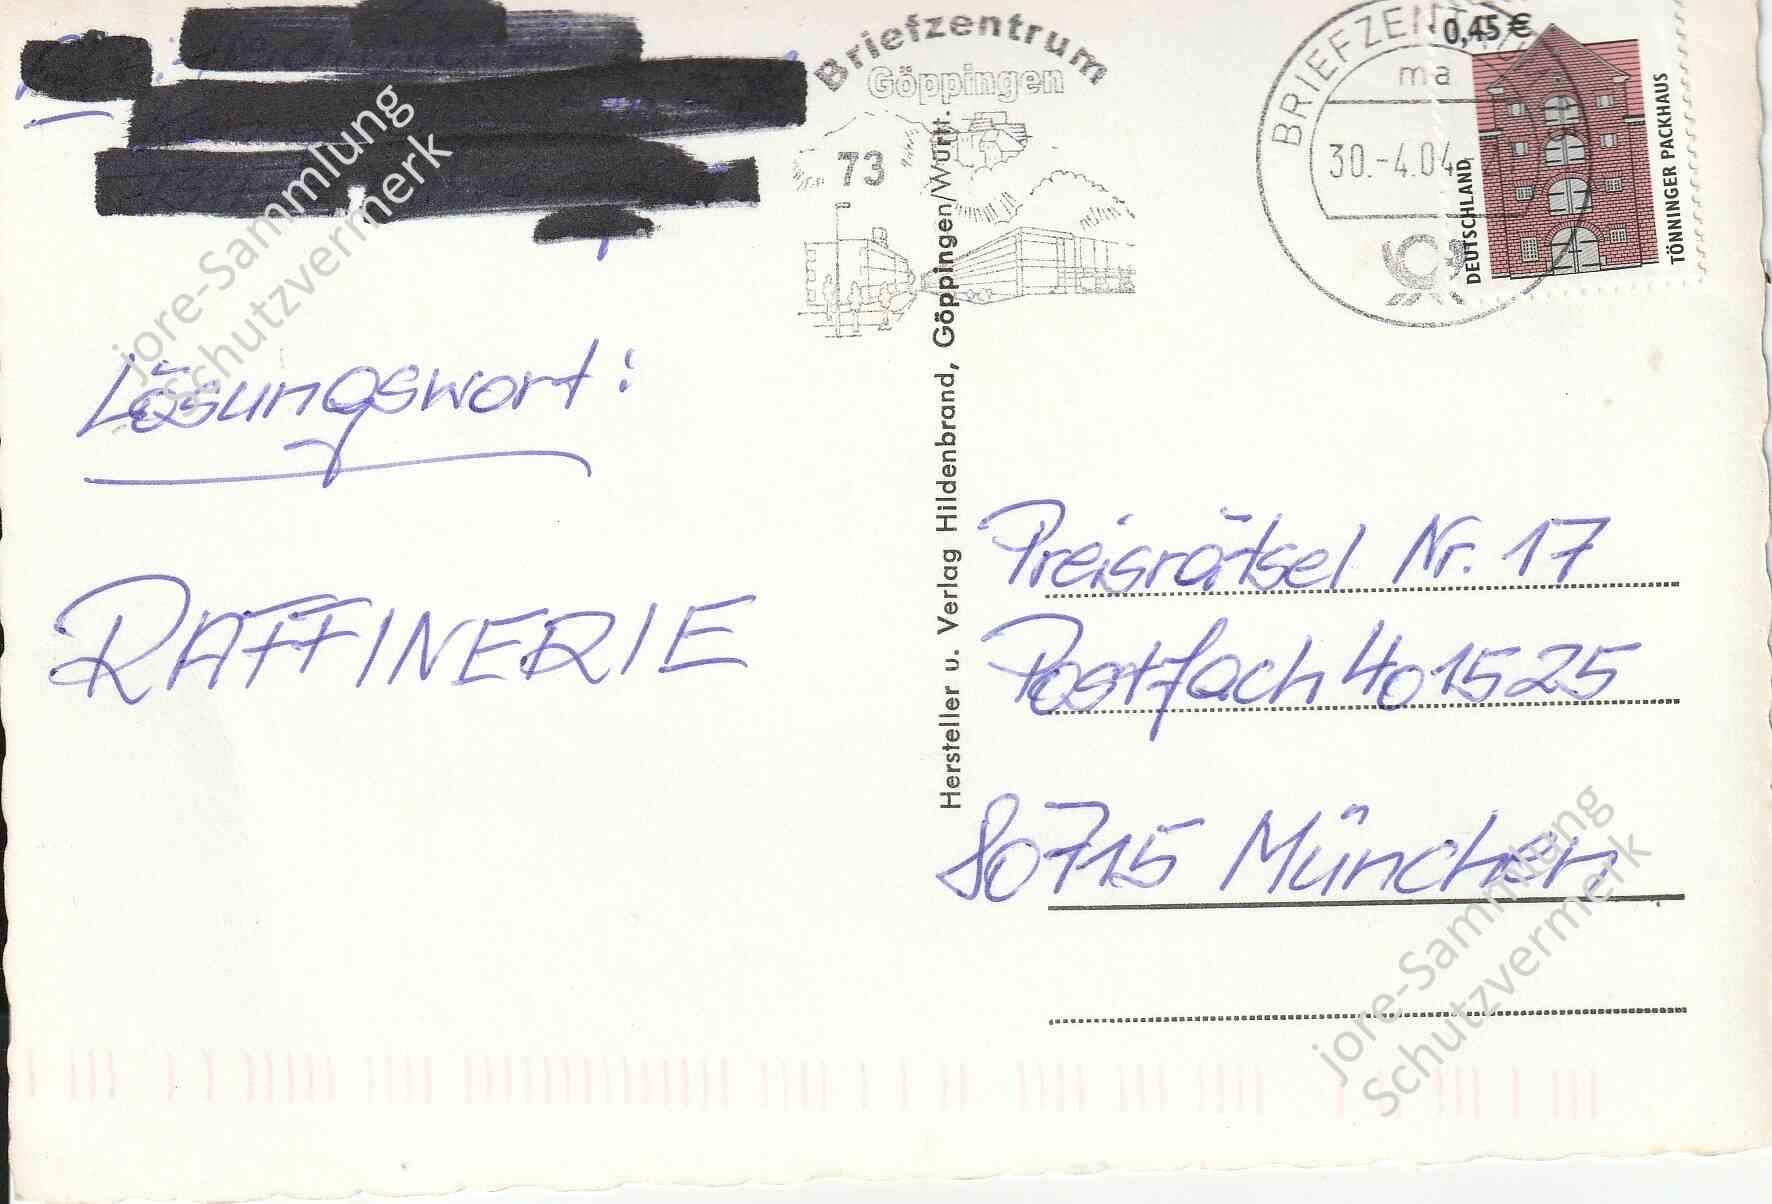 Briefzentrum
Göppingen
73
BRIEFZENTRUM
ma
30.-4.04
73
0,45 €
DEUTSCHLAND
TÖNNINGER PACKHAUS
jore-Sammlung
Schutzvermerk
Lösungswort:
RAFFINERIE
Hersteller u. Verlag Hildenbrand, Göppingen/Württ.
Preisrätsel Nr. 17
Postfach 401525
80715 München
jore-Sammlung
Schutzvermerk